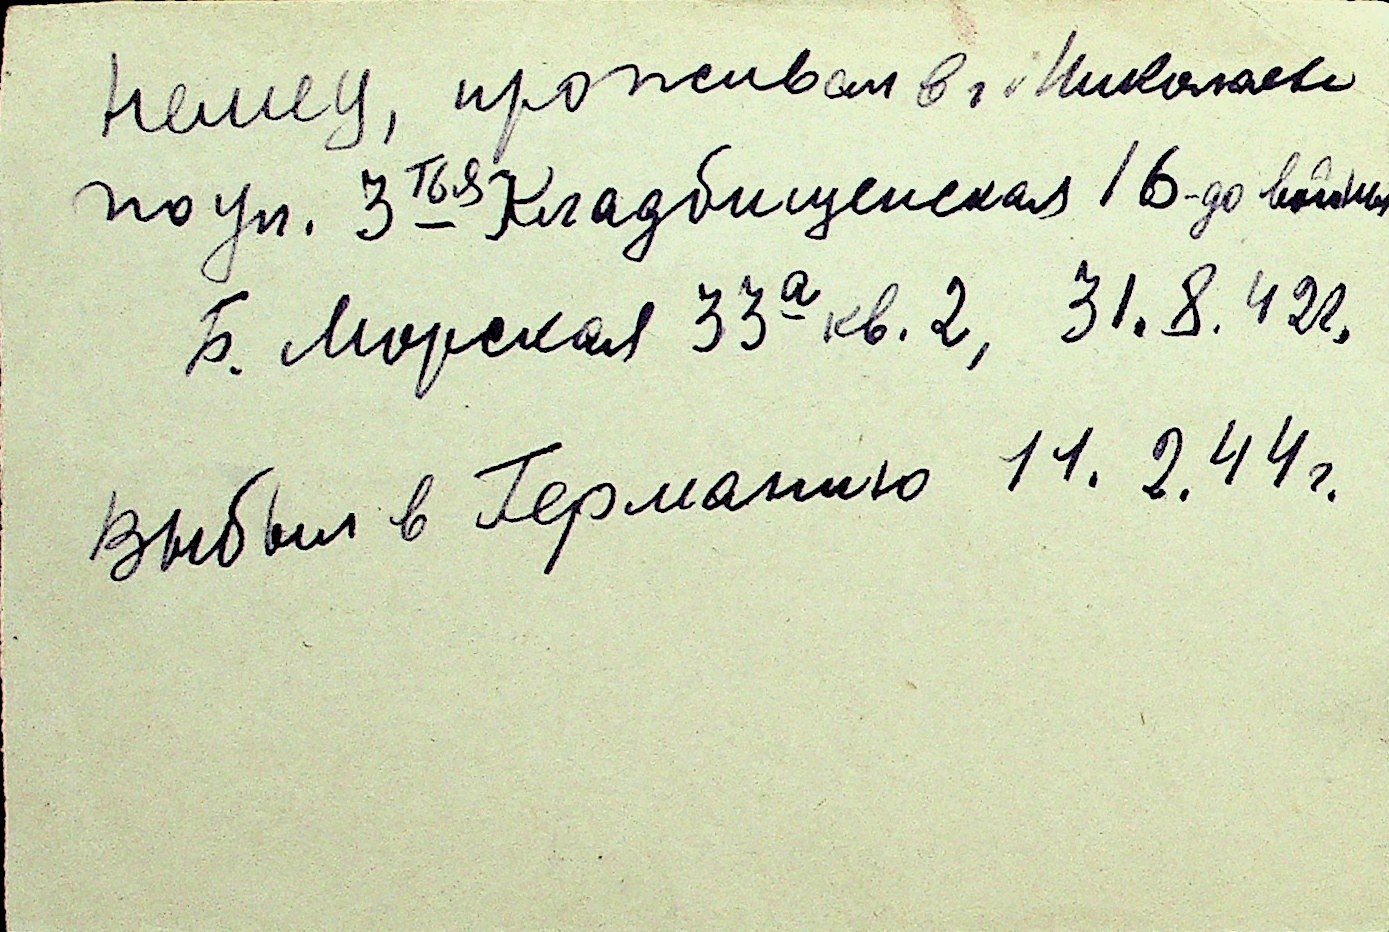 немец, проживал в г. Николаеве
по ул. 3тья Кладбищенская 16 - до войны
Б. Морская 33а кв. 2, 31.8.42г.
выбыл в Германию 11.2.44г.